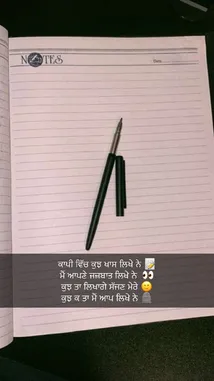 NOTES
ਕਾਪੀ ਵਿੱਚ ਕੁਝ ਖਾਸ ਲਿਖੇ ਨੇ 📝
ਮੈਂ ਆਪਣੇ ਜਜ਼ਬਾਤ ਲਿਖੇ ਨੇ 👀
ਕੁਝ ਤਾ ਲਿਖਾਗੇ ਸੱਜਣ ਮੇਰੇ 🙂
ਕੁਝ ਕ ਤਾ ਮੈਂ ਆਪ ਲਿਖੇ ਨੇ